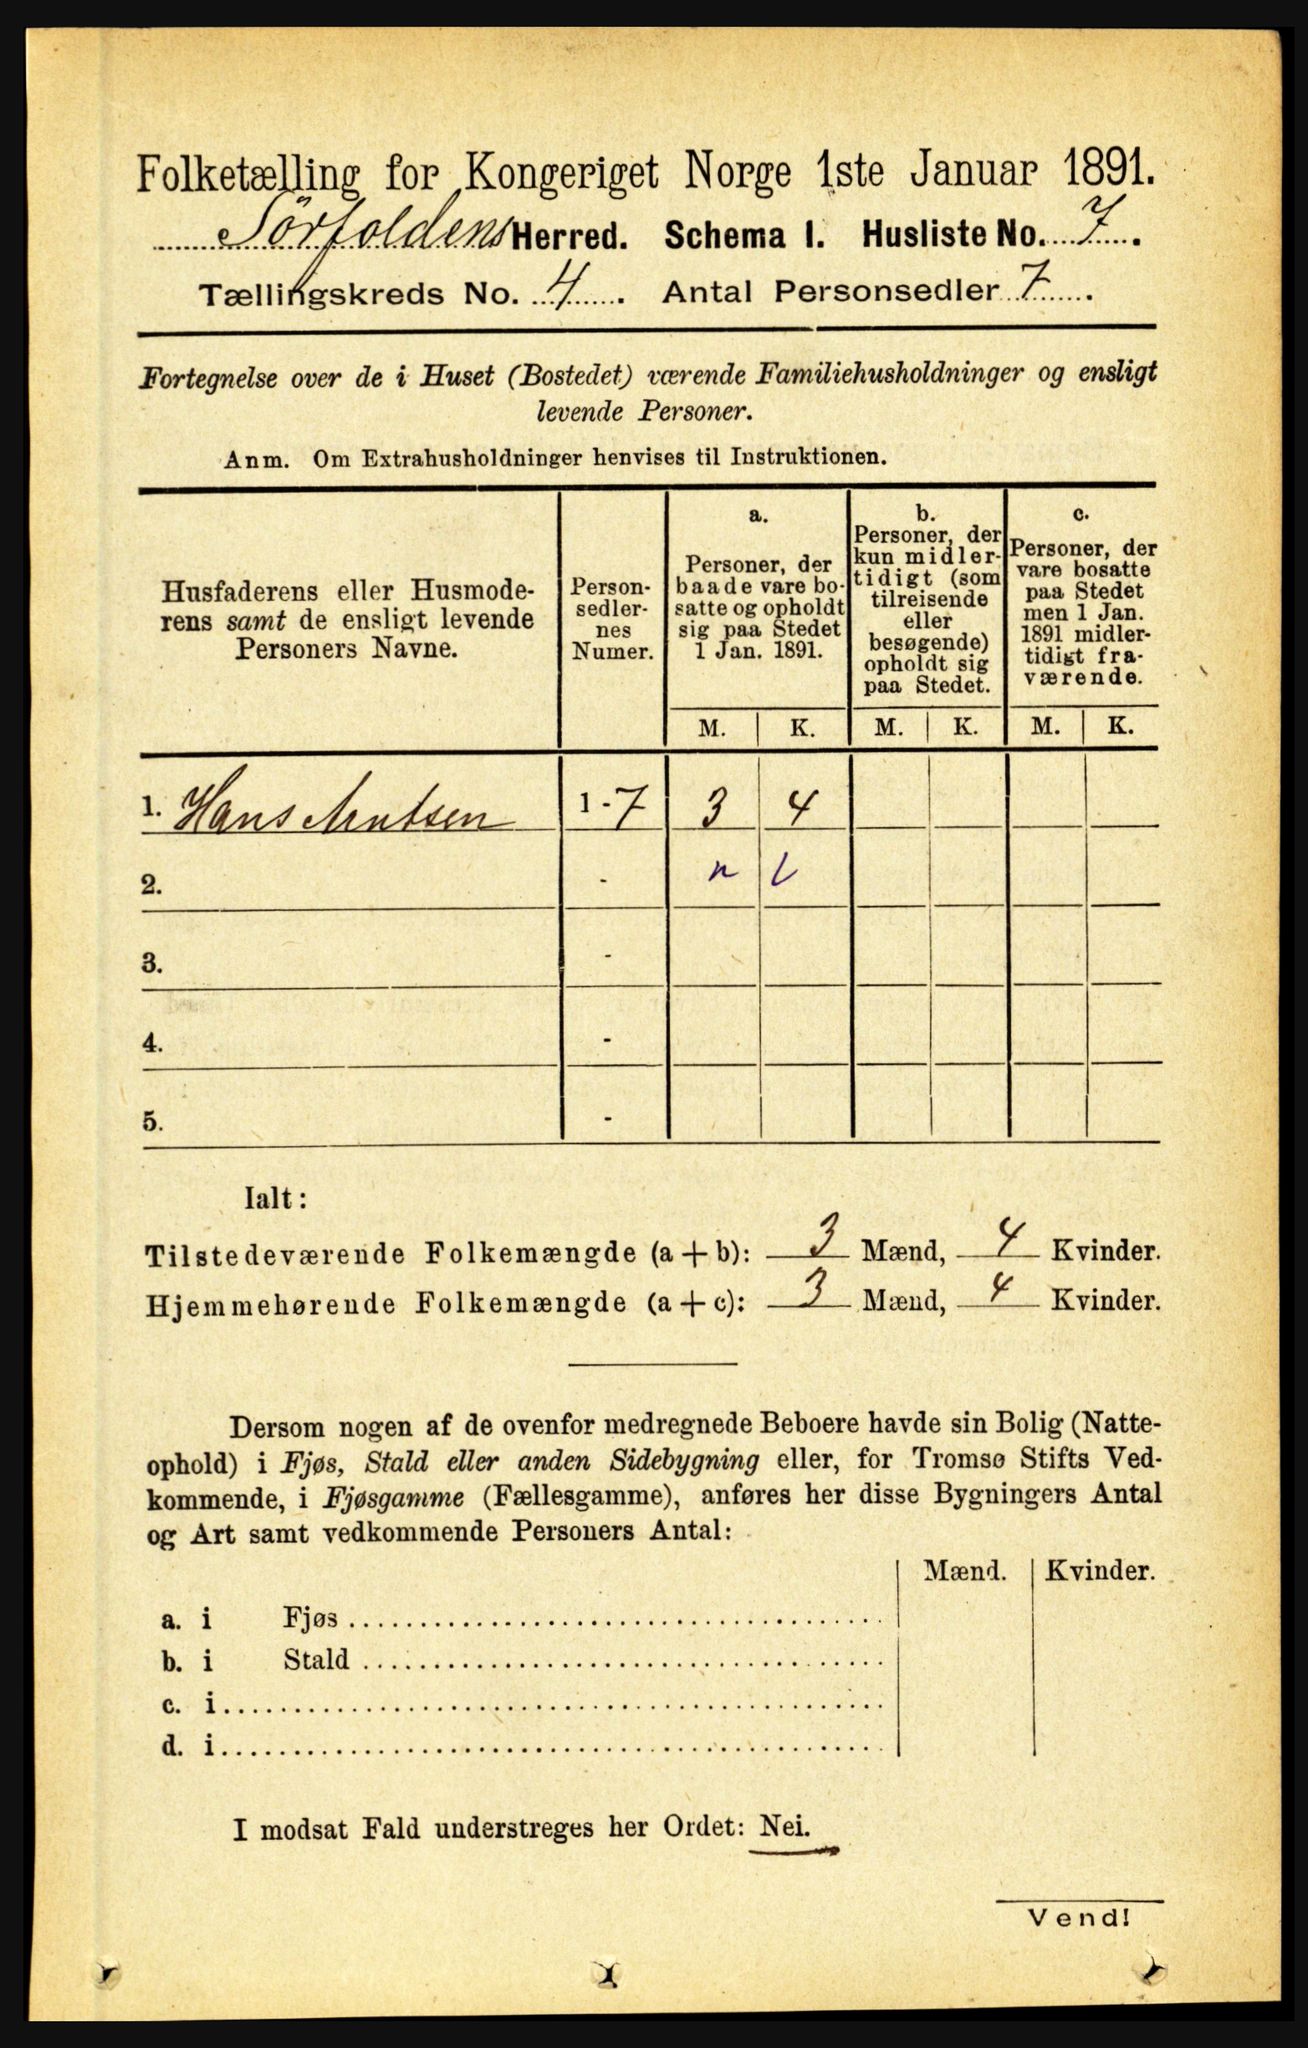 Folketælling for Kongeriget Norge 1ste Januar 1891.
Sörfoldens Herred. Schema I. Husliste No. 7.
Tællingskreds No. 4. Antal Personsedler 7.
Fortegnelse over de i Huset (Bostedet) værende Familiehusholdninger og ensligt
levende Personer.
Anm. Om Extrahusholdninger henvises til Instruktionen.
Husfaderens eller Husmode-
rens samt de ensligt levende
Personers Navne.
Person-
sedler-
nes
Numer.
a.
Personer, der
baade vare bo-
satte og opholdt
sig paa Stedet
1 Jan. 1891.
b.
Personer, der
kun midler-
tidigt (som
tilreisende
eller
besøgende)
opholdt sig
paa Stedet.
c.
Personer, der
vare bosatte
paa Stedet
men 1 Jan.
1891 midler-
tidigt fra-
værende.
M. K. M. K. M. K.
1. Hans Arntsen 1-7 3 4
2. -
3. -
4. -
5. -
Ialt:
Tilstedeværende Folkemængde (a + b): 3 Mænd, 4 Kvinder.
Hjemmehørende Folkemængde (a + c): 3 Mænd, 4 Kvinder.
Dersom nogen af de ovenfor medregnede Beboere havde sin Bolig (Natte-
ophold) i Fjøs, Stald eller anden Sidebygning eller, for Tromsø Stifts Ved-
kommende, i Fjøsgamme (Fællesgamme), anføres her disse Bygningers Antal
og Art samt vedkommende Personers Antal:
Mænd. Kvinder.
a. i Fjøs
b. i Stald
c. i
d. i
I modsat Fald understreges her Ordet: Nei.
Vend!